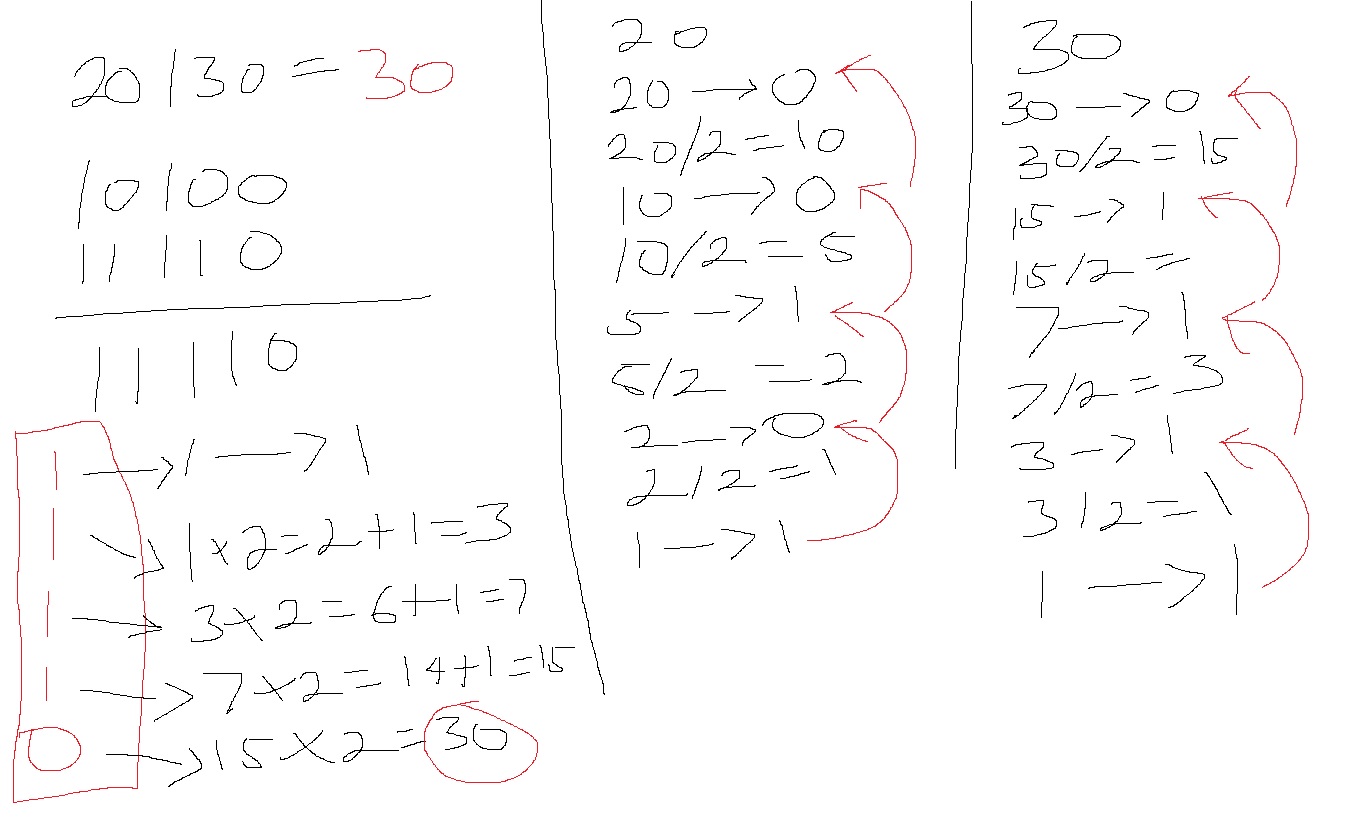 20|30=30
10100
11110
11110
1 → 1 → 1
1 → 1×2=2+1=3
1 → 3×2=6+1=7
1 → 7×2=14+1=15
0 → 15×2=30
20
20 → 0
20/2=10
10 → 0
10/2=5
5 → 1
5/2=2
2 → 0
2/2=1
1 → 1
30
30 → 0
30/2=15
15 → 1
15/2=
7 → 1
7/2=3
3 → 1
3/2=1
1 → 1